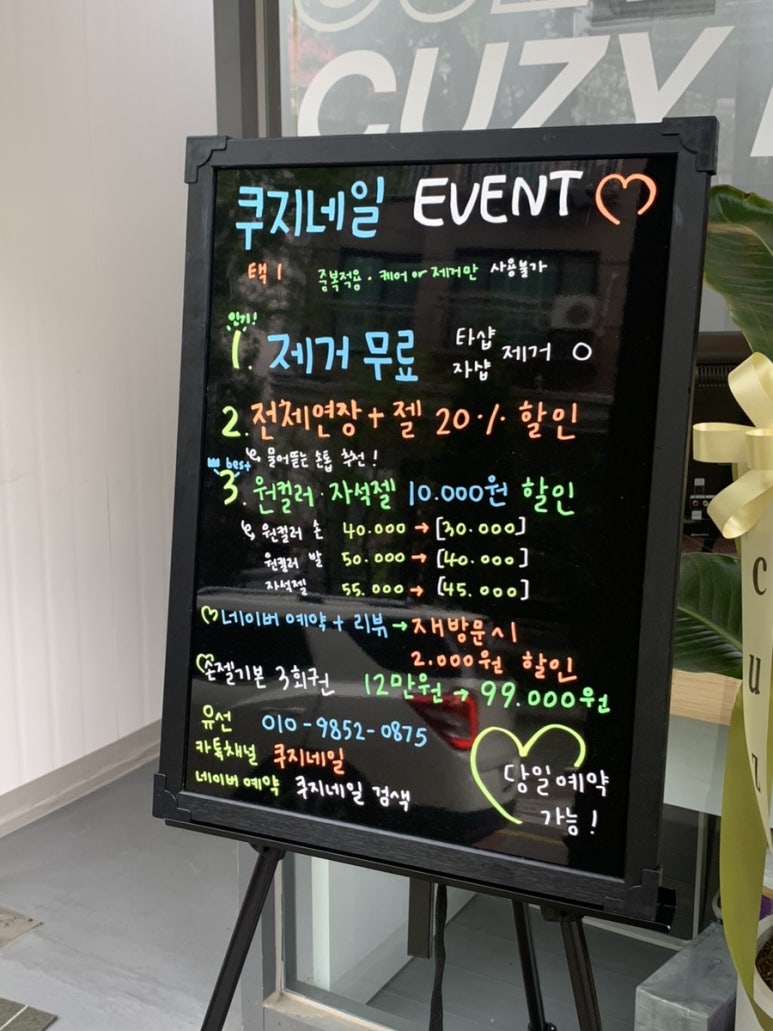 CUZY
쿠지네일 EVENT ♡
택 1 중복적용 · 케어 or 제거만 사용불가
인기!
1. 제거 무료 타샵 자샵 제거 O
2. 전체연장 + 젤 20% 할인
물어뜯는 손톱 추천!
best
3. 원컬러 · 자석젤 10.000원 할인
원컬러 손 40.000 → [30.000]
원컬러 발 50.000 → [40.000]
자석젤 55.000 → [45.000]
♡네이버 예약 + 리뷰 → 재방문시
2.000원 할인
♡손젤기본 3회권 12만원 → 99.000원
유선 010-9852-0875
카톡채널 쿠지네일
네이버 예약 쿠지네일 검색
당일예약
가능!
c
u
z